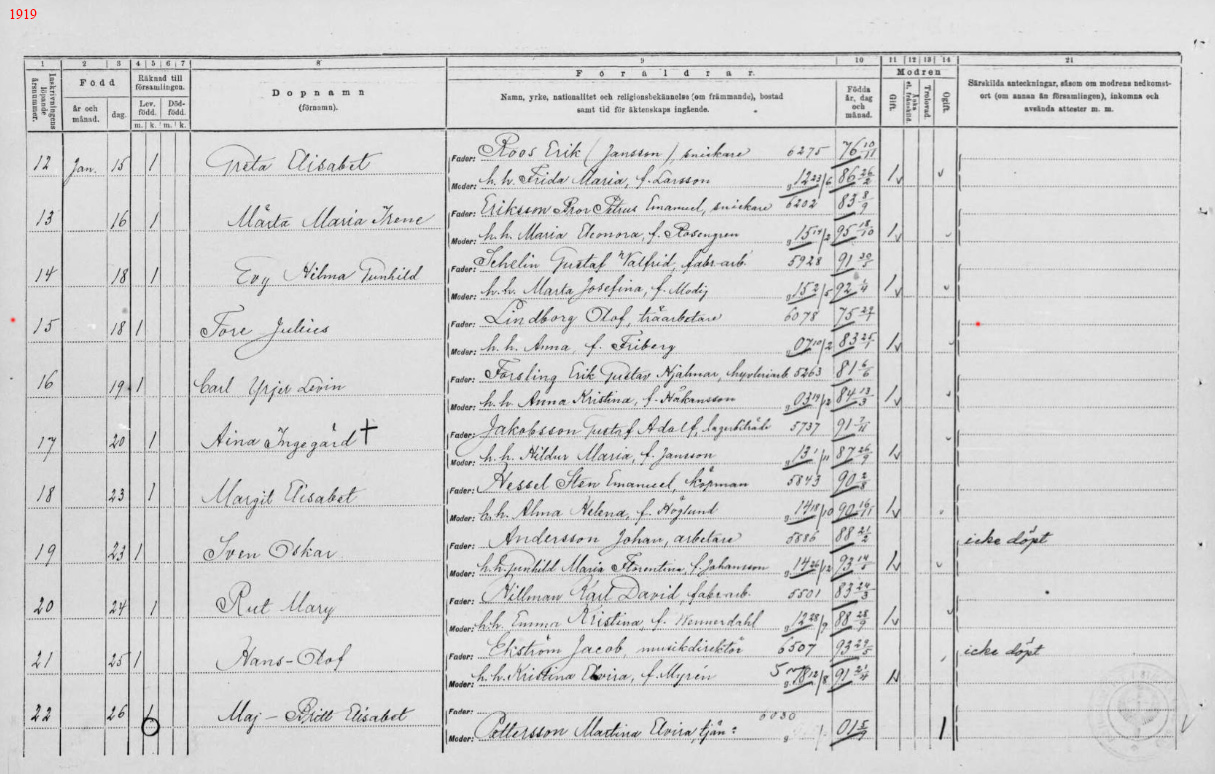 1919
1 2 3 4 5 6 7 8 9 10 11 12 13 14 21
Inskrivningens löpande årsnummer.
Född
år och månad.
dag.
Räknad till församlingen.
Lev. född.
Död-född.
m. k. m. k.
Dopnamn
(förnamn).
Föräldrar.
Namn, yrke, nationalitet och religionsbekännelse (om främmande), bostad
samt tid för äktenskaps ingående.
Födda år, dag och månad.
Modren
Gift.
Trolovad.
Ogift.
Särskilda anteckningar, såsom om modrens nedkomst-
ort (om annan än församlingen), inkomna och
använda attester m. m.
12 Jan. 15 1 Greta Elisabet
Fader: Roos Erik (Jansson) snickare 6275 76 10/11
Moder: h. h. Frida Maria, f. Larsson g 12 23/6 86 26/2 1
13 16 1 Märta Maria Irene
Fader: Eriksson Bror Petrus Emanuel, snickare 6202 83 8/9
Moder: h. h. Maria Eleonora, f. Rosengren 95 1
14 18 1 Evy Hilma Gunhild
Fader: Schelin Gustaf Valfrid, fabr.arb. 5928 91
Moder: h. h. Marta Josefina, f. Modig g 15 2/5 92 1
15 18 1 Tore Julius
Fader: Lindborg Olof, träarbetare 6078 75
Moder: h. h. Anna, f. Friberg g 07 10/2 83 1
16 19 1 Carl Yrjer Levin
Fader: Forsling Erik Gustav Hjalmar, 5263 81 6/6
Moder: h. h. Anna Kristina, f. Håkansson 84 13/3 1
17 20 1 Aina Ingegärd †
Fader: Jakobsson Gustaf Adolf, lagerbiträde 5737 91
Moder: h. h. Hildur Maria, f. Jansson g 13 87 26/9 1
18 23 1 Margit Elisabet
Fader: Hessel Sten Emanuel, köpman 5843 90
Moder: h. h. Alma Helena, f. Höglund 90 1
19 23 1 Sven Oskar
Fader: Andersson Johan, arbetare 5886 88 icke döpt
Moder: h. h. Gunhild Maria Florentina f. Johansson g 14 26/12 93 1
20 24 1 Rut Mary
Fader: Karl David, fabr.arb. 5501 83 24/3
Moder: h. h. Emma Kristina, f. Wennerdahl g 12 28/9 88 1
21 25 1 Hans-Olof
Fader: Ekström Jacob, musikdirektör 6507 93 icke döpt
Moder: h. h. Kristina Elvira, f. Myrén 91 21/4 1
22 26 1 Maj-Britt Elisabet
Fader: 6030
Moder: Pettersson Martina Elvira, tjän: g 01 1